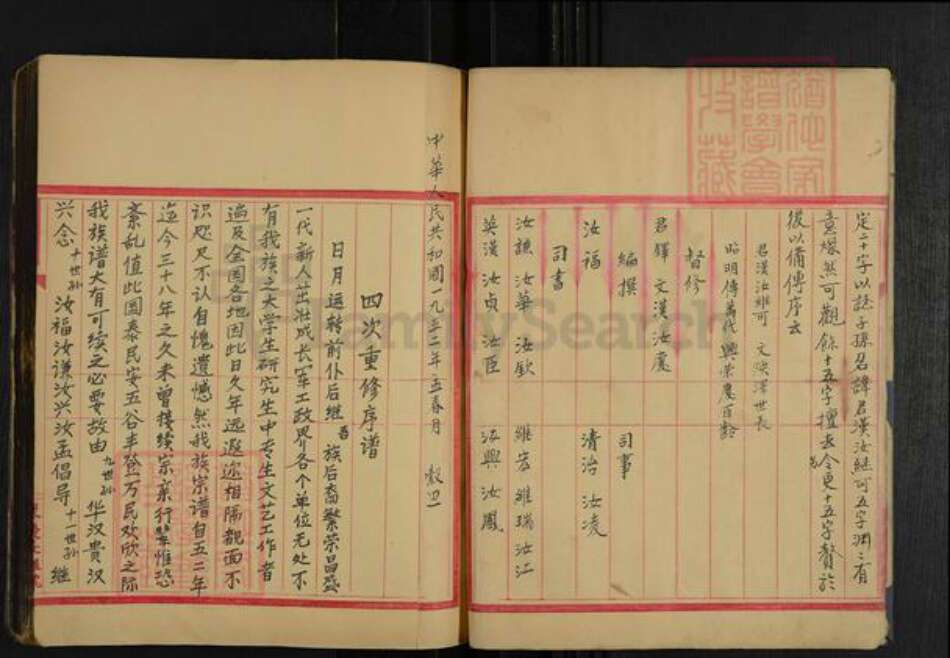 定二十字以誌子孫名諱君漢汝継可五字淵淵有
意燦然可觀餘十五字擅去今更十五字贅於
後以備傳序云
君漢汝維可 文 澤世長
昭明傳萬代 興榮慶百齡
督修
君鐸 文漢 汝慶
編撰
汝福
司事
清治 汝凌
司書
汝譙 汝華 汝欽
維宏 維瑞 汝江
英漢 汝贞 汝臣
汝興 汝鳳
中華人民共和國一九五二年孟春月 穀旦
四次重修序谱
日月运转前仆后继吾族后裔繁荣昌盛
一代新人茁壮成长军工政界各个单位无处不
有我族之大学生研究生中专生文艺工作者
遍及全国各地因此日久年远遐迩相隔覩面不
识咫尺不认自愧遗憾然我族宗谱自五二年
迄今三十八年之久未曾接续宗亲行辈惟恐
紊乱值此国泰民安五谷丰登万民欢欣之际
我族谱大有可续之必要故由九世孙华汉贵汉
兴念十世孙汝福汝谦汝兴汝孟倡导十一世孙继
收藏
譜學會